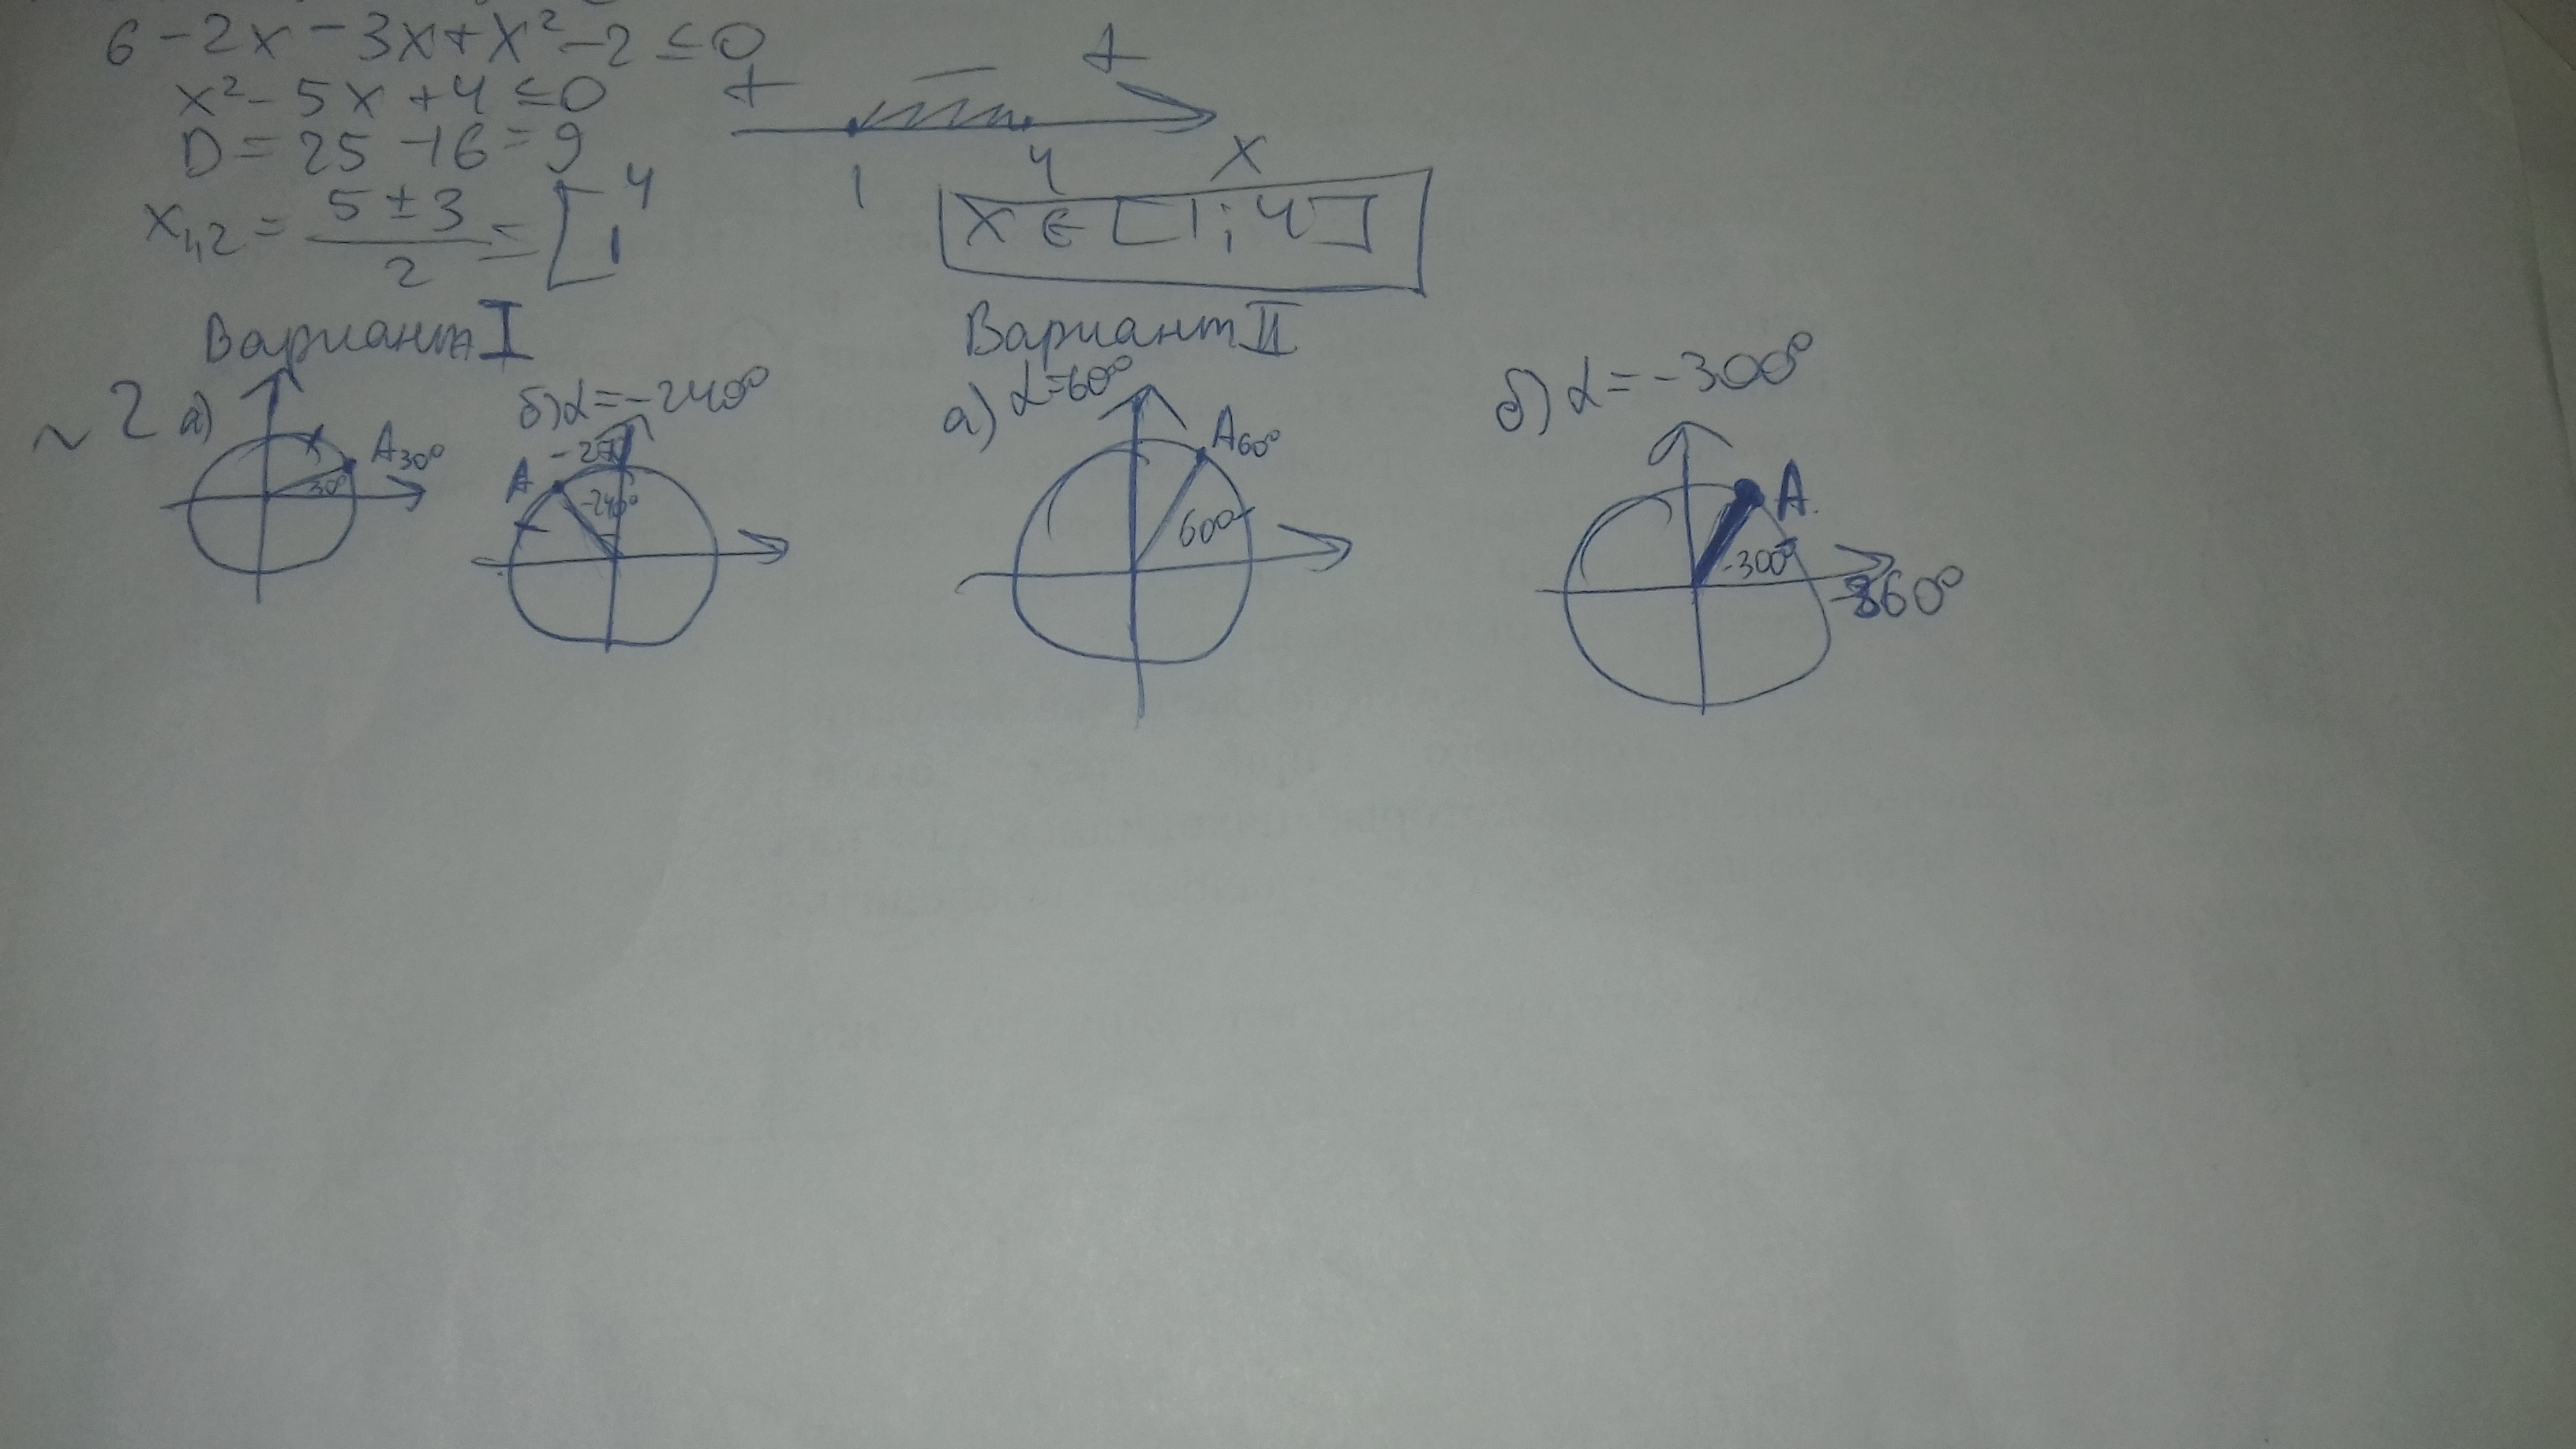 6 - 2x - 3x + x² - 2 ≤ 0
x² - 5x + 4 ≤ 0
D = 25 - 16 = 9
x₁,₂ = (5 ± 3)/2 = [ 4 1
+ - +
1 4 x
x ∈ [1; 4]
Вариант I
~2 а)
A 30°
30°
б) α = -240°
-270
A
-240°
Вариант II
а) α = 60°
A 60°
60°
б) α = -300°
A.
-300°
-360°